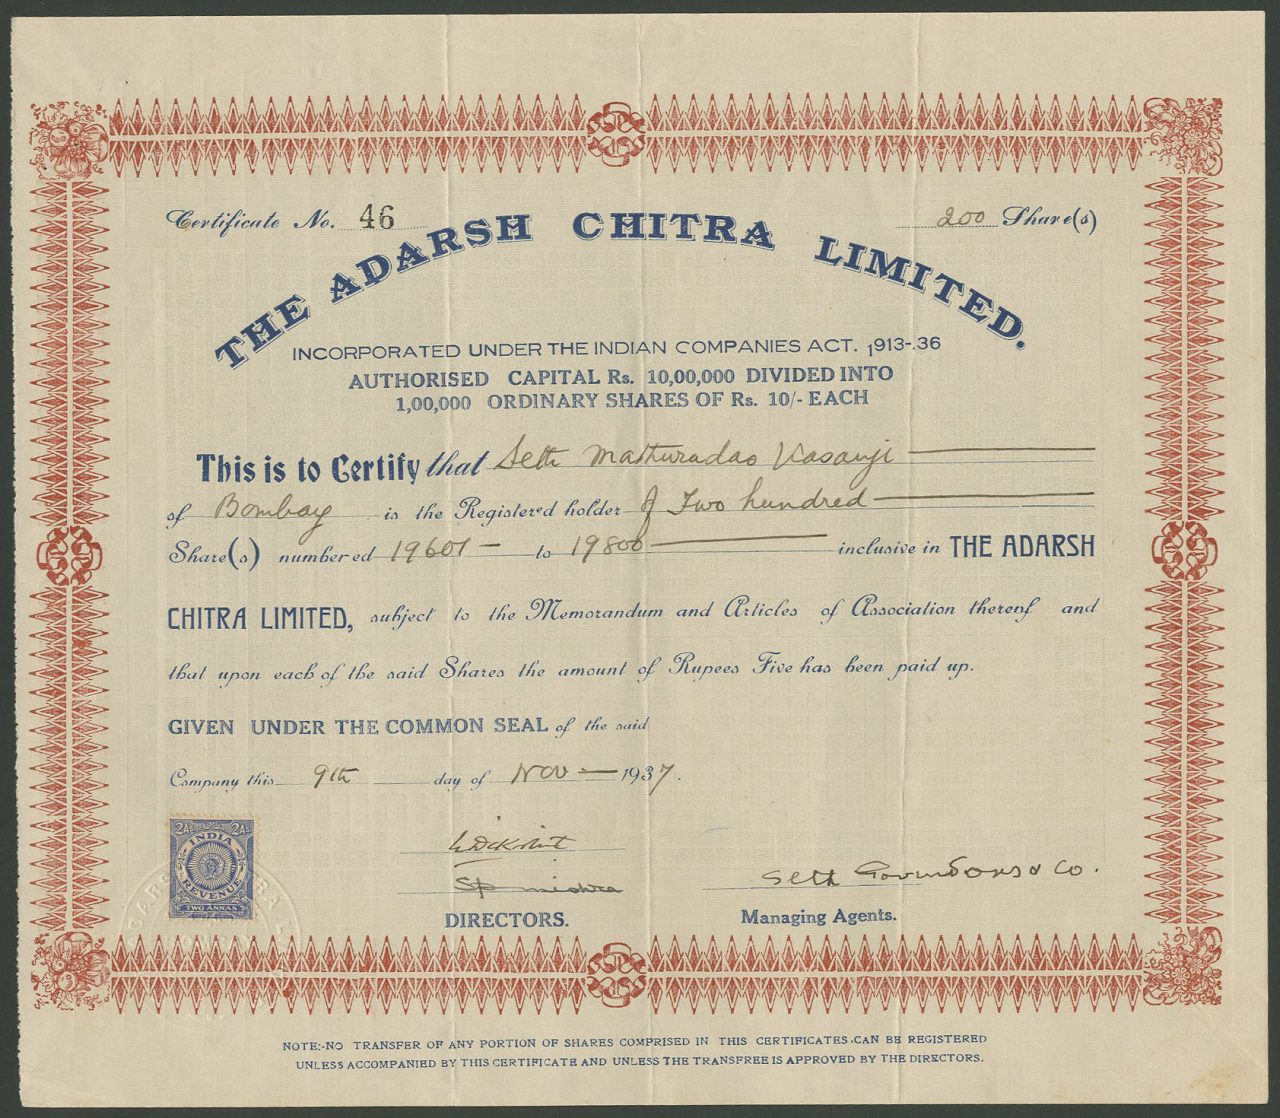 Certificate No. 46
200 Share(s)
THE ADARSH CHITRA LIMITED.
INCORPORATED UNDER THE INDIAN COMPANIES ACT. 1913-.36
AUTHORISED CAPITAL Rs. 10,00,000 DIVIDED INTO
1,00,000 ORDINARY SHARES OF Rs. 10/- EACH
This is to Certify that Seth Mathuradas Vasanji
of Bombay is the Registered holder of Two hundred
Share(s) numbered 19601 - to 19800 inclusive in THE ADARSH
CHITRA LIMITED, subject to the Memorandum and Articles of Association thereof and
that upon each of the said Shares the amount of Rupees Five has been paid up.
GIVEN UNDER THE COMMON SEAL of the said
Company this 9th day of Nov - 1937.
2As. 2As.
INDIA
REVENUE
TWO ANNAS
SP Mishra
Seth Govinddas & Co.
DIRECTORS.
Managing Agents.
NOTE:-NO TRANSFER OF ANY PORTION OF SHARES COMPRISED IN THIS CERTIFICATES.CAN BE REGISTERED
UNLESS ACCOMPANIED BY THIS CERTIFICATE AND UNLESS THE TRANSFREE IS APPROVED BY THE DIRECTORS.